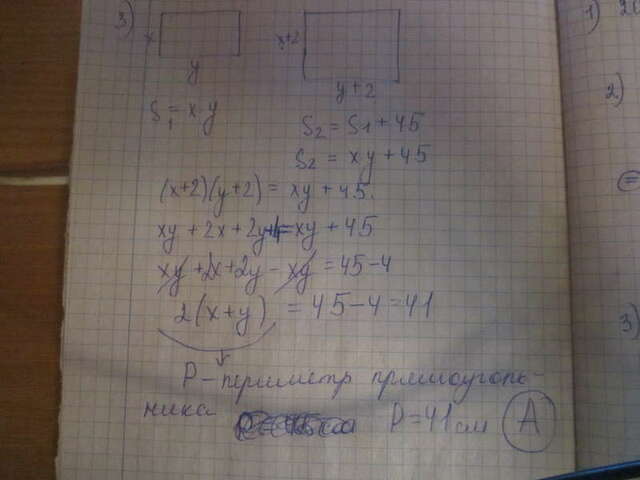 3)
x
y
x+2
y+2
S₁ = x·y
S₂ = S₁ + 45
S₂ = xy + 45
(x+2)(y+2) = xy + 45.
xy + 2x + 2y + 4 = xy + 45
xy + 2x + 2y - xy = 45 - 4
2(x+y) = 45 - 4 = 41
P - периметр прямоуголь-
ника P = 41 см А
1)
2)
=
3)